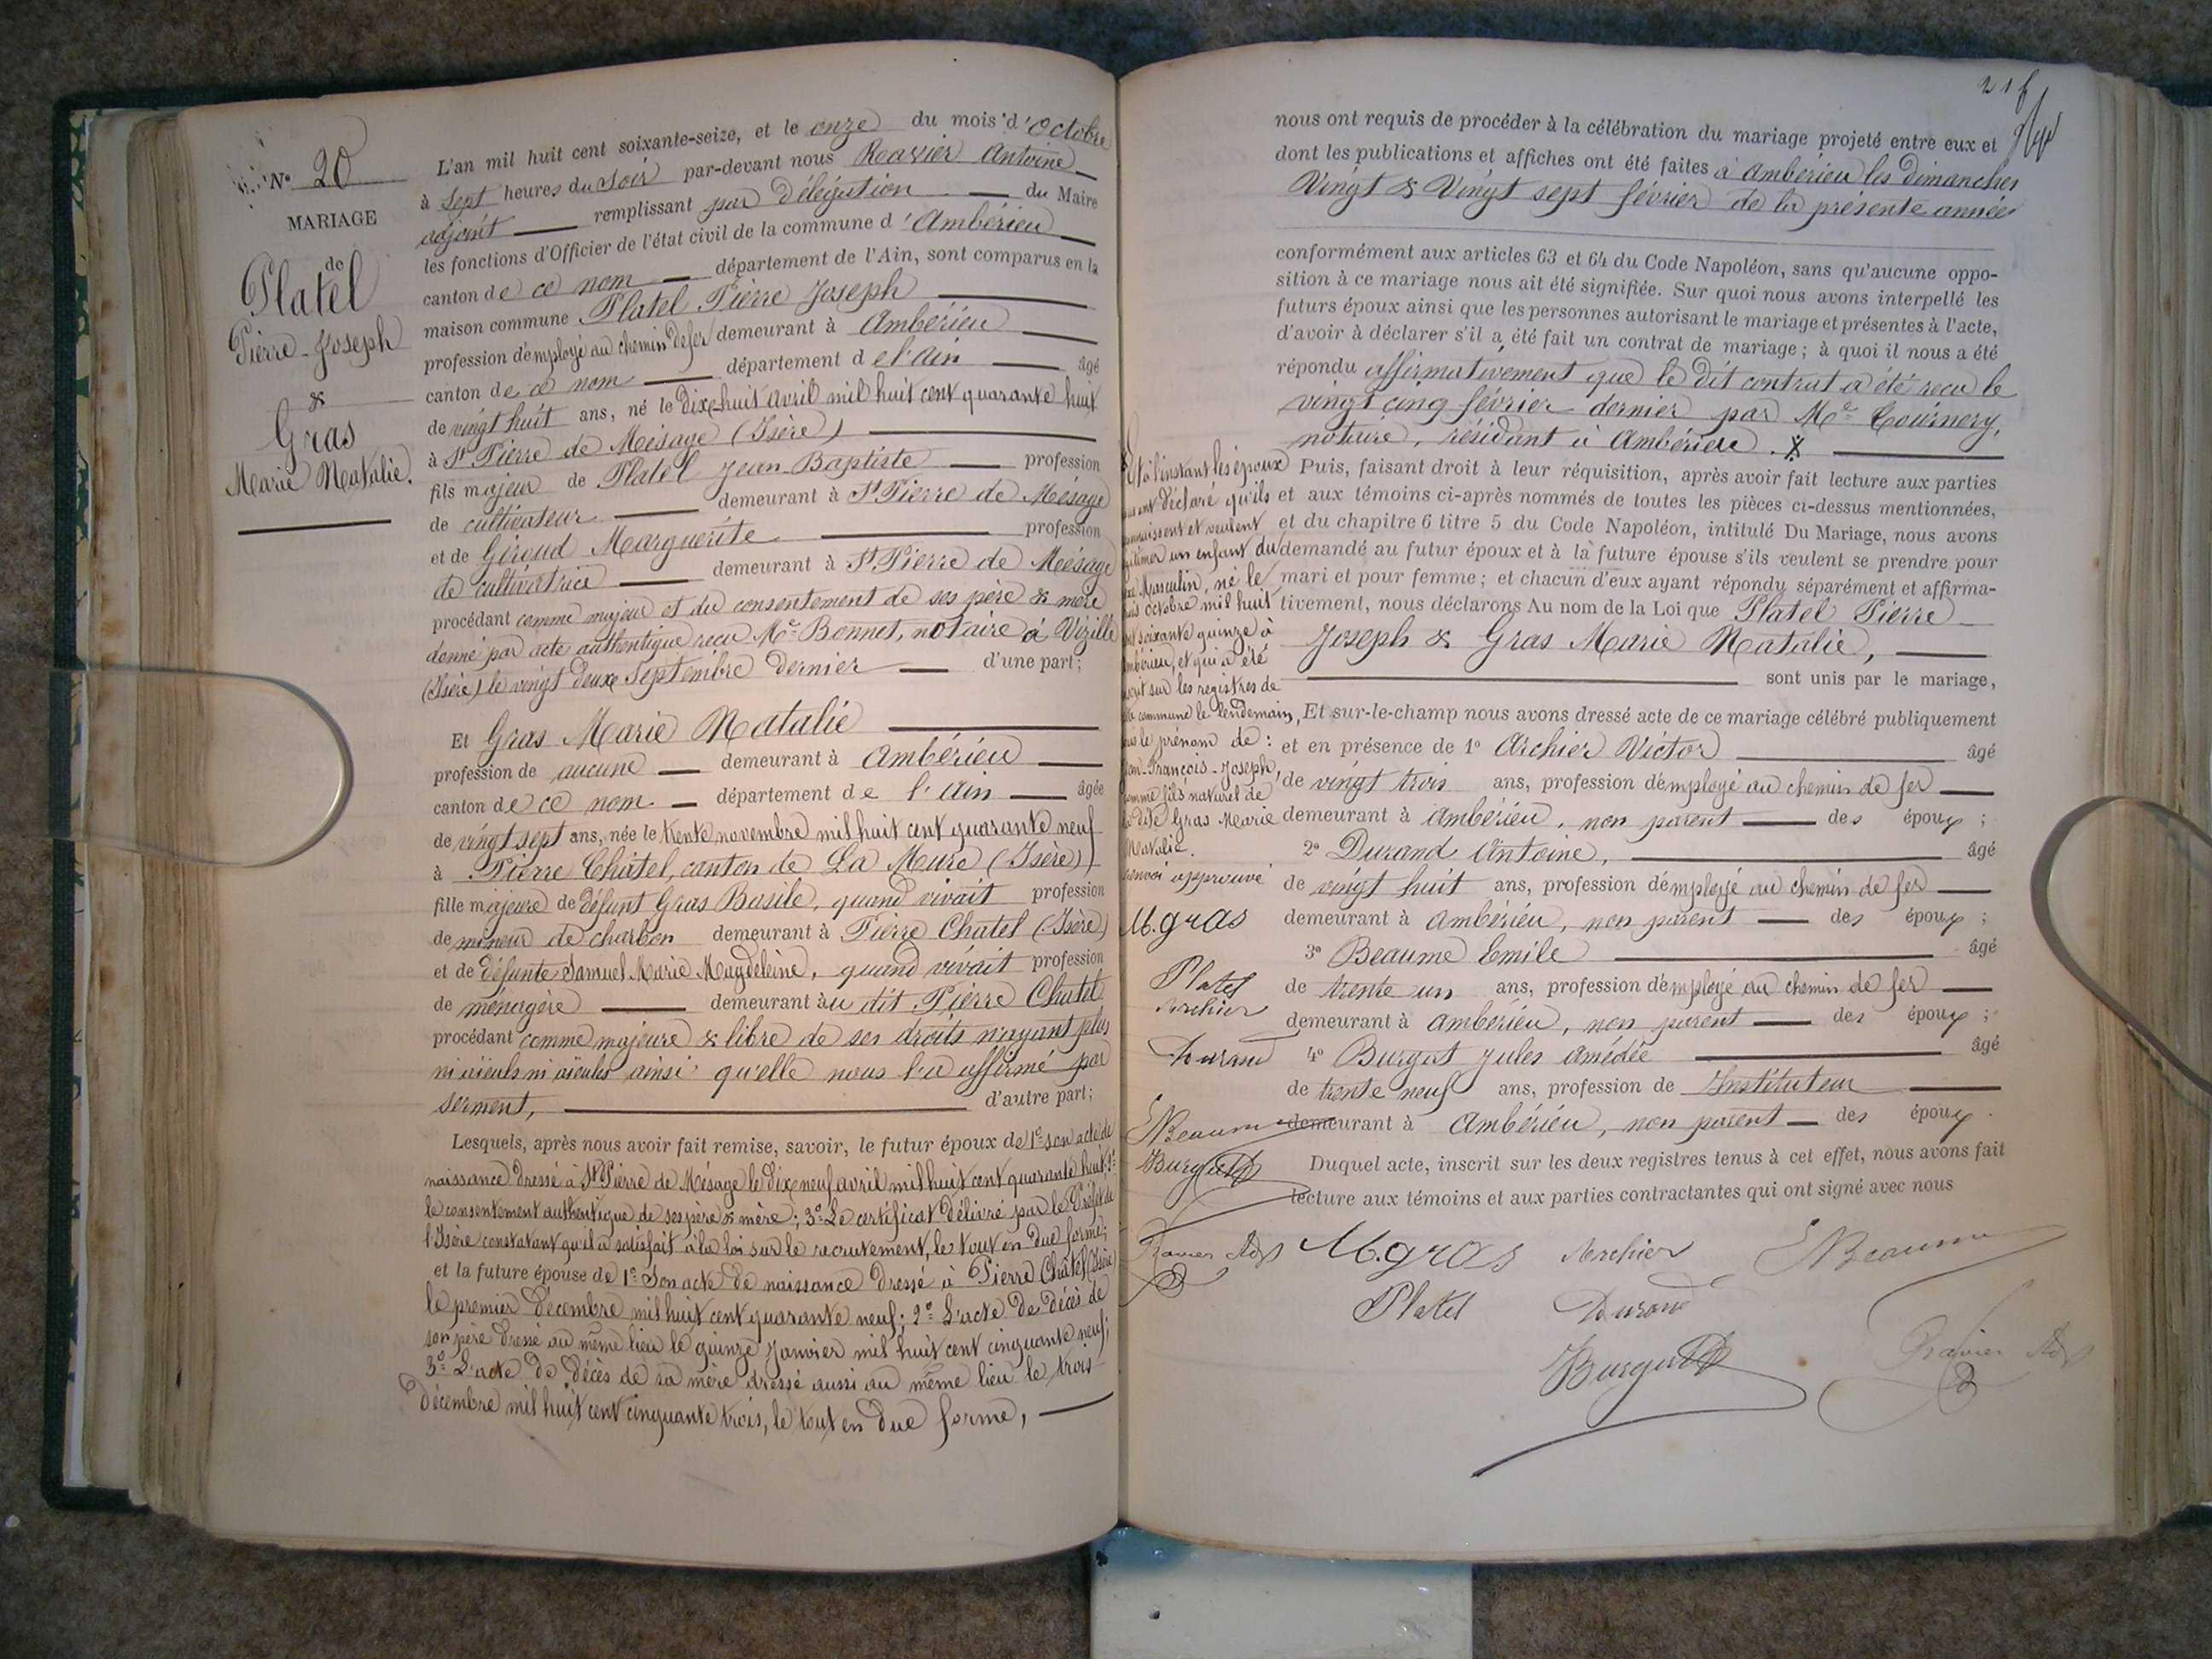 N° 20
MARIAGE
de
Platel
Pierre-Joseph
&
Gras
Marie Natalie.
L'an mil huit cent soixante-seize, et le onze du mois d'Octobre
à sept heures du soir par-devant nous Ravier Antoine
adjoint remplissant par délégation du Maire
les fonctions d'Officier de l'état civil de la commune d'Ambérieu
canton de ce nom département de l'Ain, sont comparus en la
maison commune Platel Pierre Joseph
profession d'employé au chemin de fer demeurant à Ambérieu
canton de ce nom département de l'Ain âgé
de vingt huit ans, né le dix-huit avril mil huit cent quarante huit
à St Pierre de Mésage (Isère)
fils majeur de Platel Jean-Baptiste profession
de cultivateur demeurant à St Pierre de Mésage
et de Giroud Marguerite profession
de cultivatrice demeurant à St Pierre de Mésage
procédant comme majeur et du consentement de ses père & mère
donné par acte authentique reçu Me Bonnet, notaire à Vizille
(Isère) le vingt deux Septembre dernier d'une part;
Et Gras Marie Natalie
profession de aucune demeurant à Ambérieu
canton de ce nom département de l'Ain âgée
de vingt sept ans, née le trente novembre mil huit cent quarante neuf
à Pierre Châtel, canton de La Mure (Isère)
fille majeure de défunt Gras Basile, quand vivait profession
de mineur de charbon demeurant à Pierre Chatel (Isère)
et de défunte Samuel Marie Magdeleine, quand vivait profession
de ménagère demeurant au dit Pierre Chatel
procédant comme majeure & libre de ses droits n'ayant plus
ni aieuls ni aieules ainsi qu'elle nous l'a affirmé par
serment, d'autre part;
Lesquels, après nous avoir fait remise, savoir, le futur époux de 1° son acte de
naissance dressé à St Pierre de Mésage le dix neuf avril mil huit cent quarante huit; 2°
le consentement authentique de ses père & mère; 3° Le certificat délivré par le Préfet de
l'Isère constatant qu'il a satisfait à la loi sur le recrutement, le tout en due forme;
et la future épouse de 1° Son acte de naissance dressé à Pierre Châtel (Isère)
le premier décembre mil huit cent quarante neuf; 2° L'acte de décès de
son père dressé au même lieu le quinze Janvier mil huit cent cinquante neuf;
3° L'acte de décès de sa mère dressé aussi au même lieu le trois
décembre mil huit cent cinquante trois, le tout en due forme,
nous ont requis de procéder à la célébration du mariage projeté entre eux et
dont les publications et affiches ont été faites à Ambérieu les dimanches
Vingt & Vingt sept février de la présente année
conformément aux articles 63 et 64 du Code Napoléon, sans qu'aucune oppo-
sition à ce mariage nous ait été signifiée. Sur quoi nous avons interpellé les
futurs époux ainsi que les personnes autorisant le mariage et présentes à l'acte,
d'avoir à déclarer s'il a été fait un contrat de mariage; à quoi il nous a été
répondu affirmativement que le dit contrat a été reçu le
vingt cinq février dernier par Me Tournery,
notaire, résidant à Ambérieu.
Puis, faisant droit à leur réquisition, après avoir fait lecture aux parties
et aux témoins ci-après nommés de toutes les pièces ci-dessus mentionnées,
et du chapitre 6 titre 5 du Code Napoléon, intitulé Du Mariage, nous avons
demandé au futur époux et à la future épouse s'ils veulent se prendre pour
mari et pour femme; et chacun d'eux ayant répondu séparément et affirma-
tivement, nous déclarons Au nom de la Loi que Platel Pierre
Joseph & Gras Marie Natalie,
sont unis par le mariage,
Et sur-le-champ nous avons dressé acte de ce mariage célébré publiquement
et en présence de 1° Archier Victor âgé
de vingt trois ans, profession d'employé au chemin de fer
demeurant à Ambérieu, non parent des époux;
2° Durand Antoine, âgé
de vingt huit ans, profession d'employé au chemin de fer
demeurant à Ambérieu, non parent des époux;
3° Beaume Emile âgé
de trente un ans, profession d'employé au chemin de fer
demeurant à Ambérieu, non parent des époux;
4° Burgat Jules Amédée âgé
de trente neuf ans, profession de Instituteur
demeurant à Ambérieu, non parent des époux.
Duquel acte, inscrit sur les deux registres tenus à cet effet, nous avons fait
lecture aux témoins et aux parties contractantes qui ont signé avec nous
Et à l'instant les époux
ont déclaré qu'ils
et veulent
un enfant du
Masculin, né le
octobre mil huit
soixante quinze à
et qui a été
sur les registres de
commune le lendemain,
le prénom de:
François-Joseph,
comme fils naturel de
la dite Gras Marie
Natalie.
renvoi approuvé
M. gras
Platel
Archier
Durand
EBeaume
Burgat
Ravier Adj
M. gras Archier EBeaume
Platel Durand
Burgat Ravier Adj